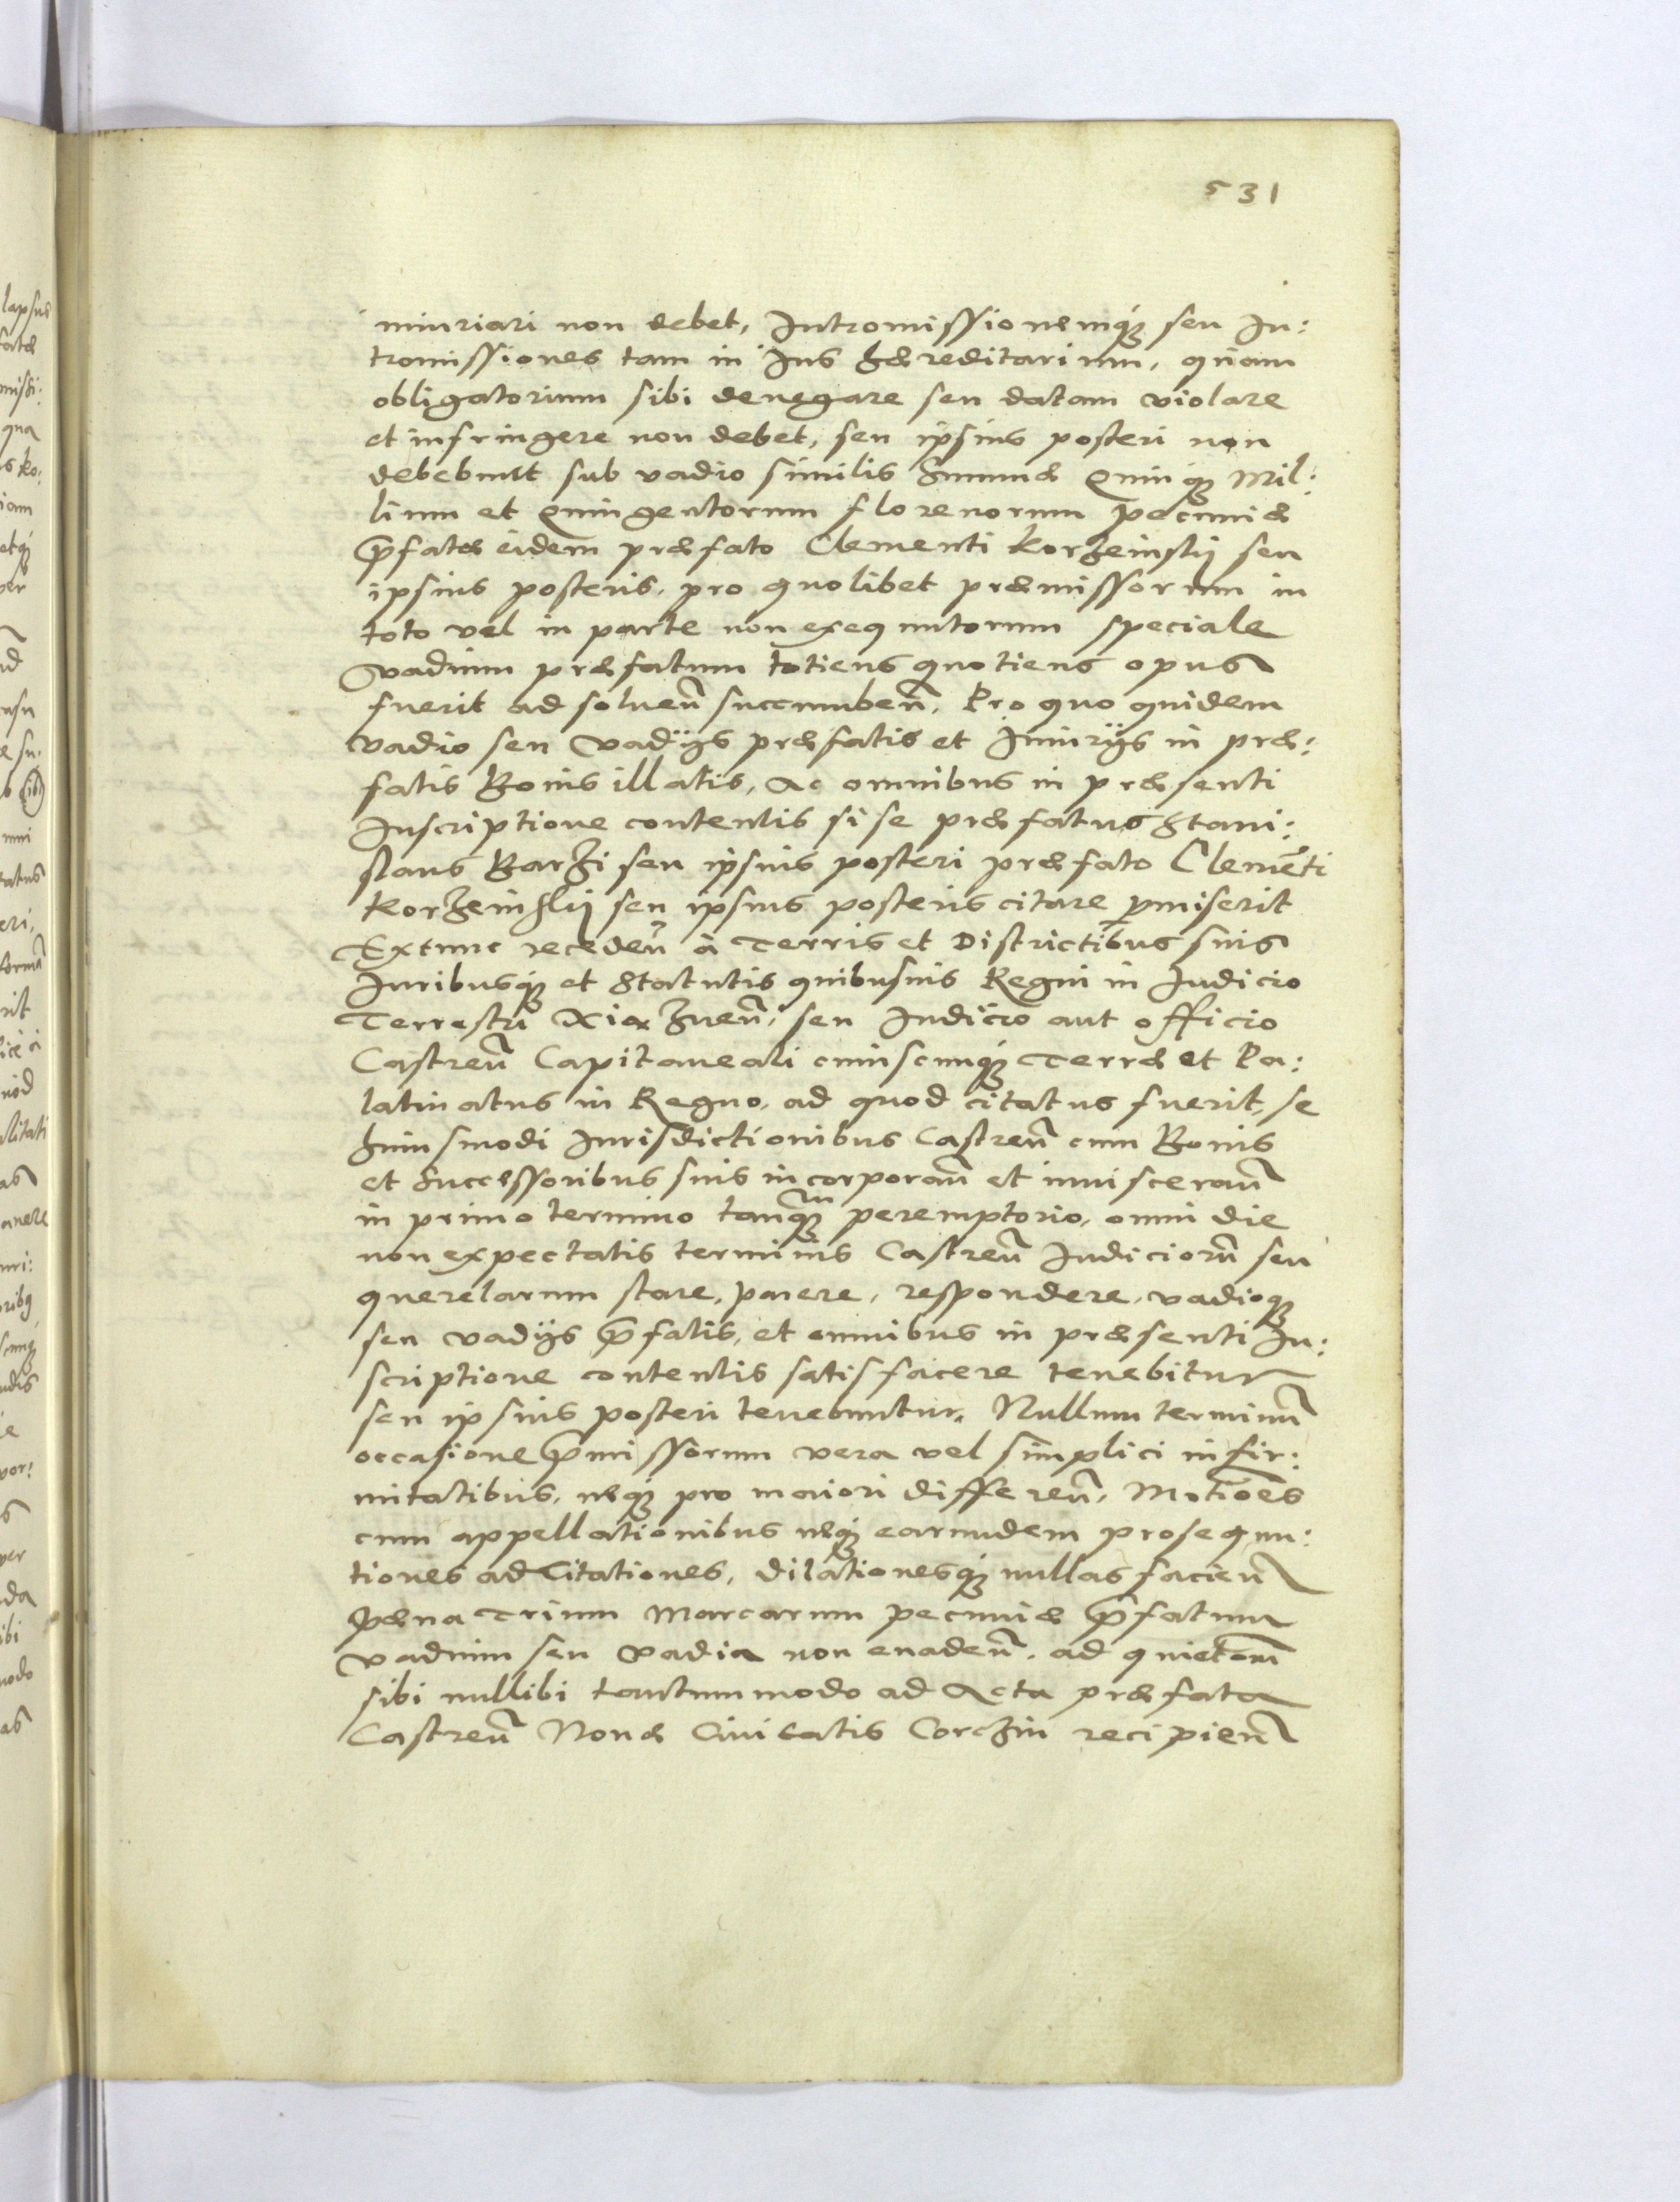 531
iniuriari non debet, Intromissionemq́ꝫ seu In:
tromissiones tam in Ius hæreditarium, quam
obligatorium sibi denegare seu datam violare
et infringere non debet, seu ipsius posteri non
debebunt sub vadio similis Summæ Quinqꝫ Mil:
lium et Quingentorum florenorum pecuniæ
p̃fatæ eidem præfato Clementi Korzeinskij seu
ipsius posteris, pro quolibet præmissorum in
toto vel in parte non exequutorum speciale
vadium præfatum totiens quotiens opus
fuerit ad soluen̄ succumben̄. Pro quo quidem
vadio seu vadijs præfatis et Iniurijs in præ:
fatis Bonis illatis, ac omnibus in præsenti
Inscriptione contentis si se præfatus Stani:
slaus Barzi seu ipsius posteri præfato Clemēti
Korzeinskij seu ipsius posteris citare p̱miserit
Extunc receden̄ à Terris et Districtibus suis
Iuribusq́ꝫ et Statutis quibusuis Regni in Iudicio
Terrestri Xiąznen̄, seu Iudicio aut officio
Castren̄ Capitaneali cuiuscunq́ꝫ Terræ et Pa:
latinatus in Regno, ad quod citatus fuerit, se
huiusmodi Iurisdictionibus Castren̄ cum Bonis
et Successoribus suis incorporan̄ et inuisceran̄
in primo termino tanqꝫ peremptorio, omni die
non expectatis terminis Castren̄ Iudiciorū seu
querelarum stare, parere, respondere, vadioqꝫ
seu vadijs p̃fatis, et omnibus in præsenti In:
scriptione contentis satisfacere tenebitur
seu ipsius posteri tenebuntur. Nullum terminū
occasione p̃missorum vera vel simplici infir:
mitatibus, neqꝫ pro maiori differen̄, Motiōes
cum appellationibus neqꝫ earundem prosequu:
tiones ad Citationes, dilationesq́ꝫ nullas facien̄
Pœna Trium Marcarum pecuniæ p̃fatum
vadium seu vadia non euaden̄, ad quietaōm̄
sibi nullibi tantummodo ad Acta præfata
Castren̄ Nouæ Ciuitatis Corczin recipien̄